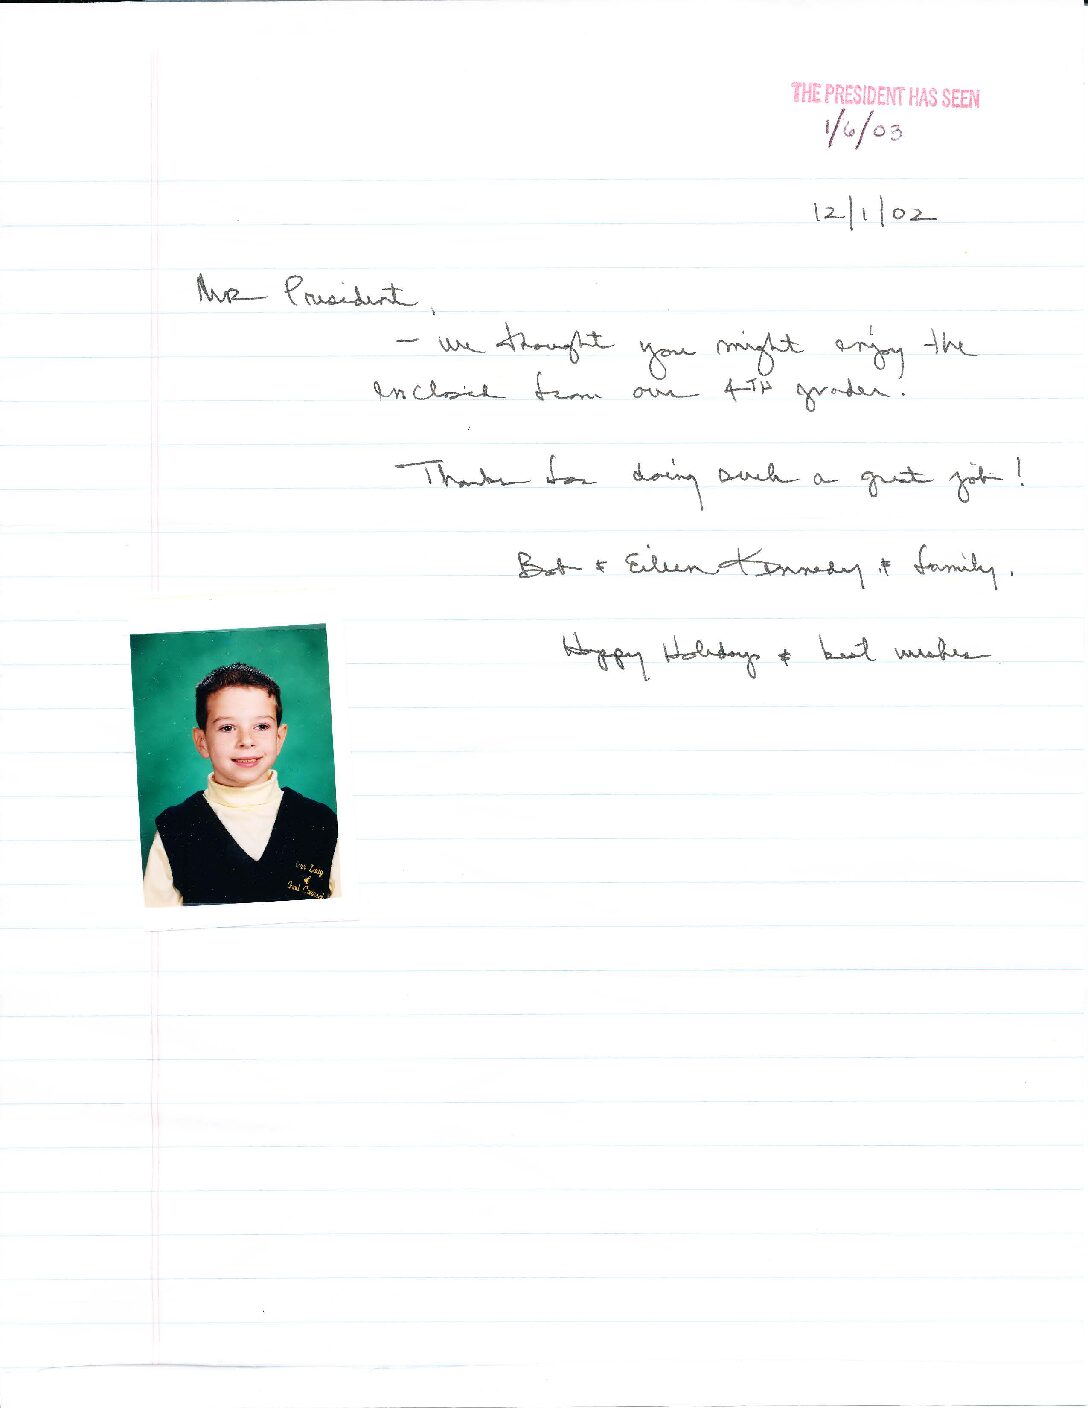 THE PRESIDENT HAS SEEN
1/6/03
12/1/02
MR President,
- we thought you might enjoy the
enclosed from our 4TH grader.
Thanks for doing such a great job!
Bob & Eileen Kennedy & family.
Happy Holidays & best wishes
Our Lady
of
Good Counsel